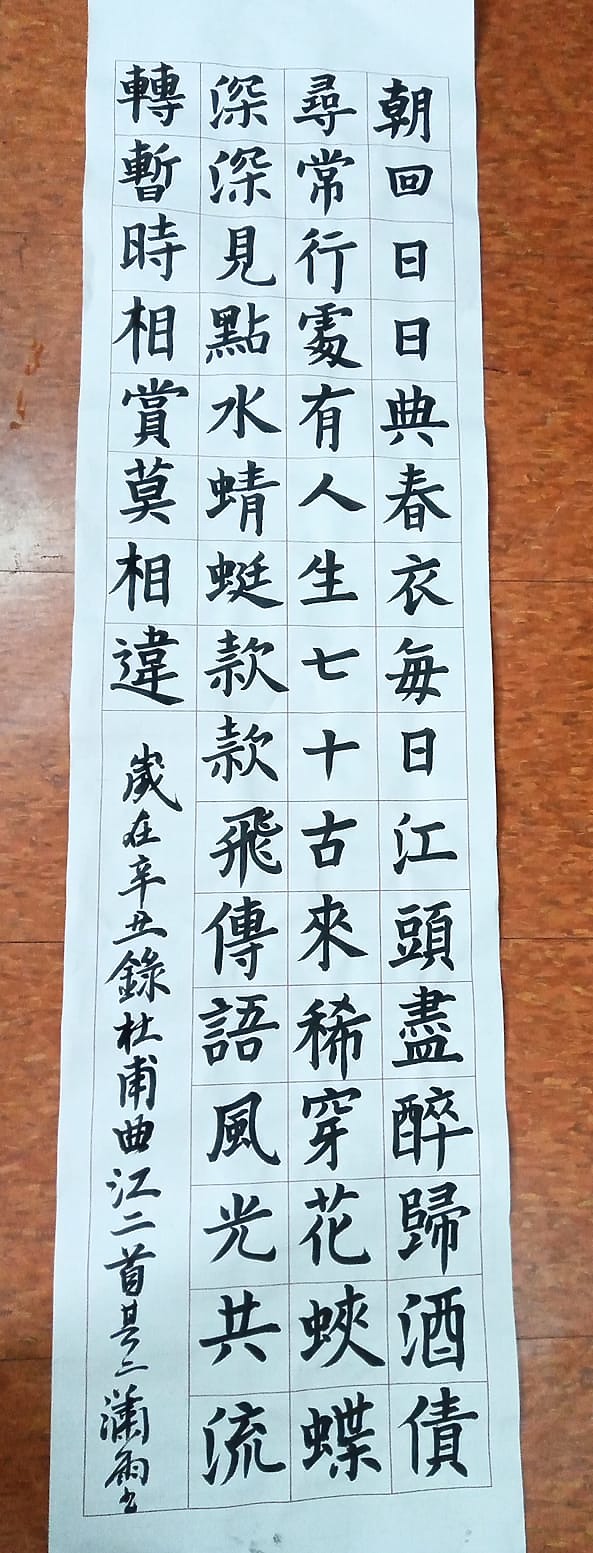 朝回日日典春衣每日江頭盡醉歸酒債
尋常行處有人生七十古來稀穿花蛺蝶
深深見點水蜻蜓款款飛傳語風光共流
轉暫時相賞莫相違
歲在辛丑錄杜甫曲江二首其二瀟雨書